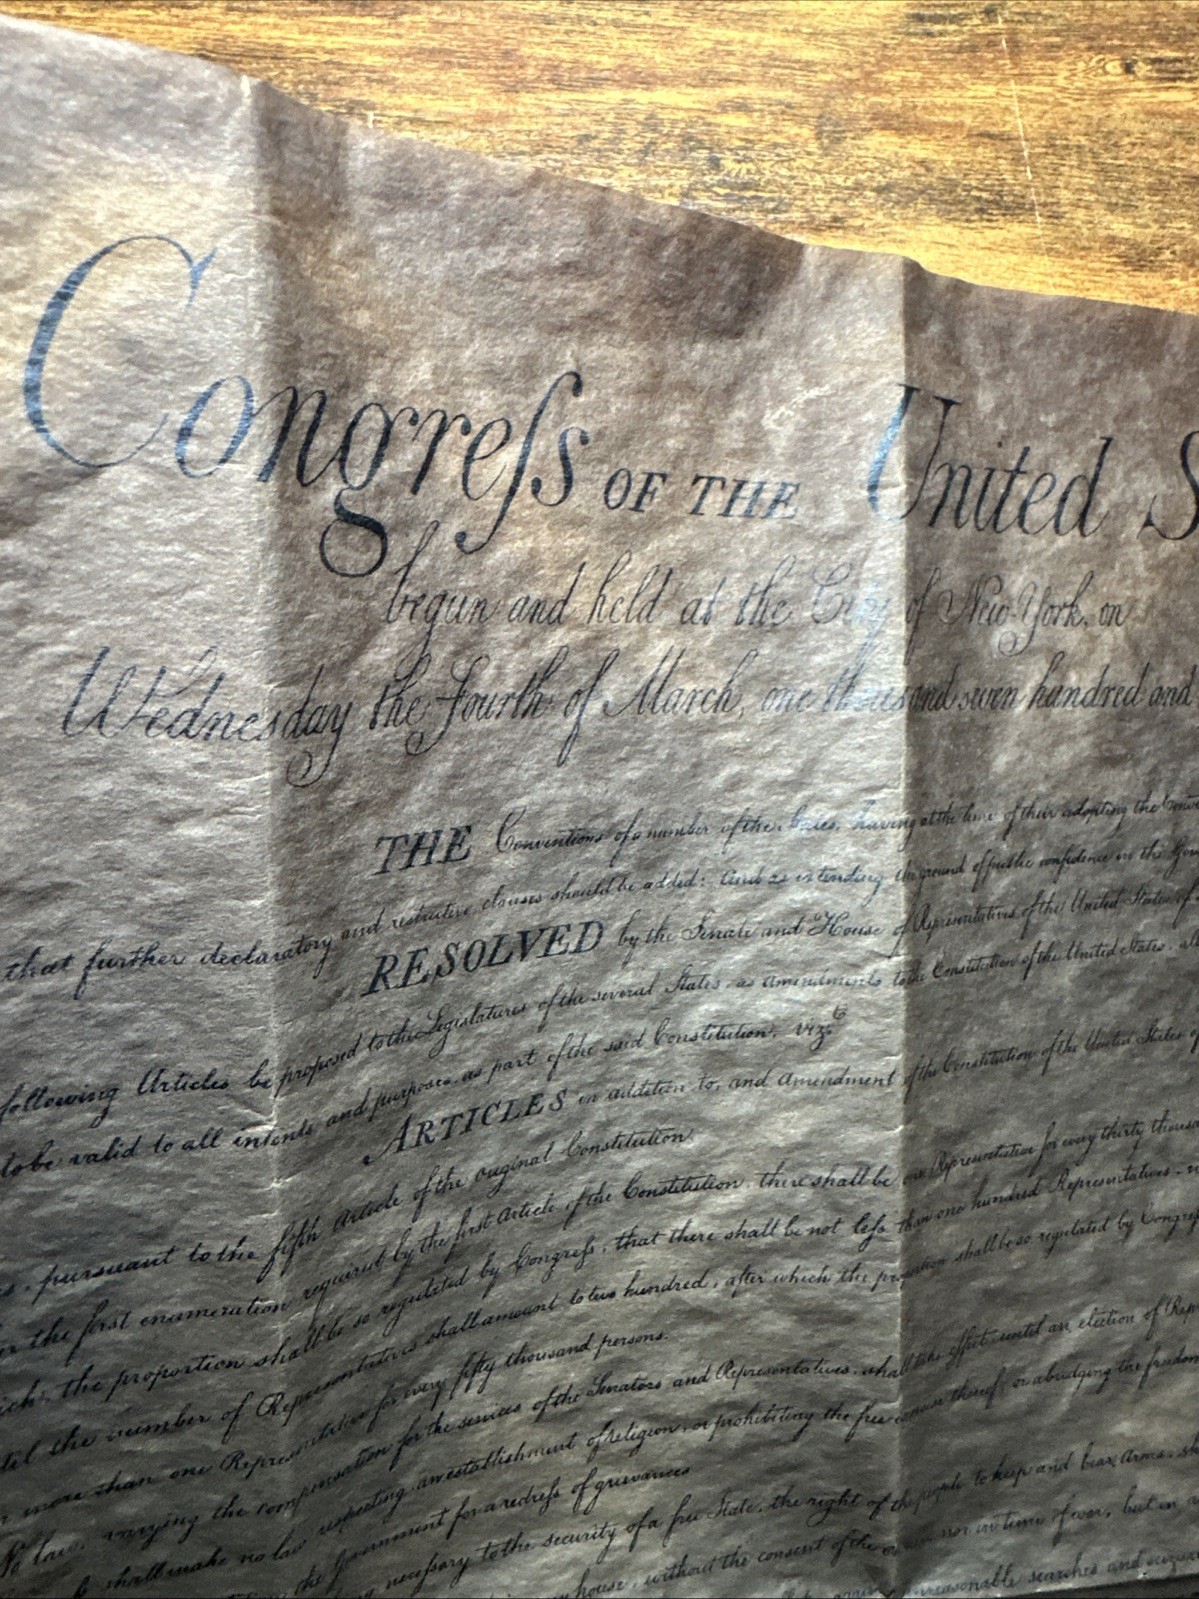 Congreſs OF THE United S
begun and held at the City of New-York, on
Wednesday the Fourth of March, one thousand seven hundred and
THE Conventions of a number of the States, having at the time of their adopting the Const
that further declaratory and restrictive clauses should be added: And as extending the ground of public confidence in the Gov
RESOLVED by the Senate and House of Representatives of the United States of
following Articles be proposed to the Legislatures of the several States, as amendments to the Constitution of the United States, all
to be valid to all intents and purposes, as part of the said Constitution. viz.t
ARTICLES in addition to, and amendment of the Constitution of the United States of
s, pursuant to the fifth Article of the original Constitution.
r the first enumeration required by the first Article of the Constitution, there shall be one Representative for every thirty thousa
ich, the proportion shall be so regulated by Congreſs, that there shall be not leſs than one hundred Representatives, n
til the number of Representatives shall amount to two hundred, after which the proportion shall be so regulated by Congre
r more than one Representative for every fifty thousand persons.
No law, varying the compensation for the services of the Senators and Representatives, shall take effect, until an election of Rep
shall make no law respecting an establishment of religion, or prohibiting the free exercise thereof; or abridging the freedom
the Government for a redreſs of grievances
necessary to the security of a free State, the right of the people to keep and bear Arms, sh
house, without the consent of the owner, nor in time of war, but in a
against unreasonable searches and seizur